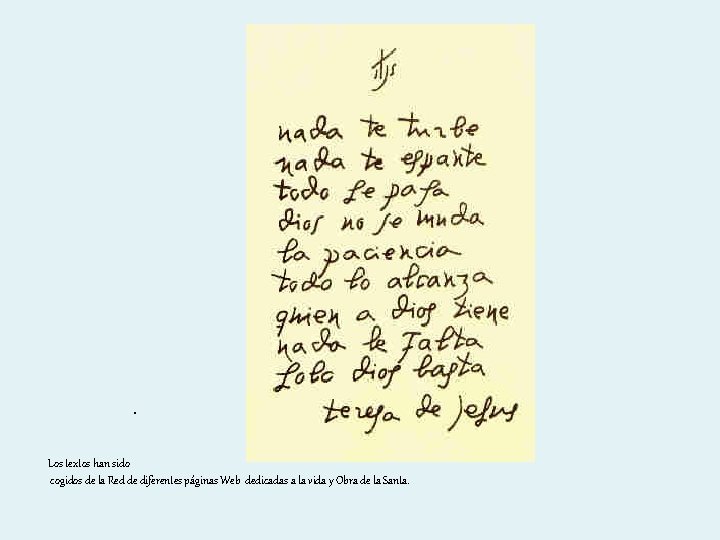 jhs
nada te turbe
nada te espante
todo se pasa
dios no se muda
la paciencia
todo lo alcanza
quien a dios tiene
nada le falta
solo dios basta
teresa de jesus
.
Los textos han sido
cogidos de la Red de diferentes páginas Web dedicadas a la vida y Obra de la Santa.